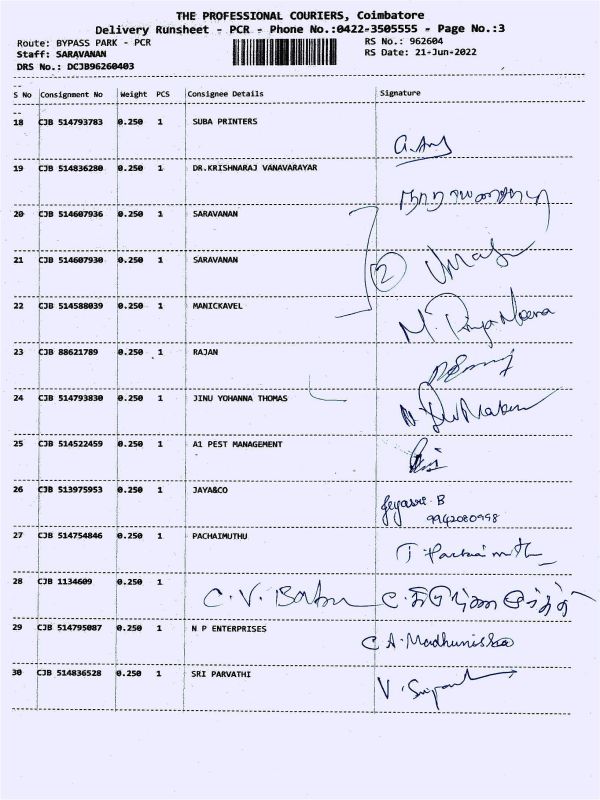 THE PROFESSIONAL COURIERS, Coimbatore
Delivery Runsheet - PCR - Phone No.:0422-3505555 - Page No.:3
Route: BYPASS PARK - PCR RS No.: 962604
Staff: SARAVANAN RS Date: 21-Jun-2022
DRS No.: DCJB96260403
S No Consignment No Weight PCS Consignee Details Signature
18 CJB 514793783 0.250 1 SUBA PRINTERS
19 CJB 514836280 0.250 1 DR.KRISHNARAJ VANAVARAYAR
20 CJB 514607936 0.250 1 SARAVANAN
21 CJB 514607930 0.250 1 SARAVANAN 2
22 CJB 514588039 0.250 1 MANICKAVEL
M. Priya Meena
23 CJB 88621789 0.250 1 RAJAN
24 CJB 514793830 0.250 1 JINU YOHANNA THOMAS
25 CJB 514522459 0.250 1 A1 PEST MANAGEMENT
26 CJB 513975953 0.250 1 JAYA&CO
Jeyasri. B
9942080998
27 CJB 514754846 0.250 1 PACHAIMUTHU
28 CJB 1134609 0.250 1
C. V. Babu
29 CJB 514795087 0.250 1 N P ENTERPRISES
30 CJB 514836528 0.250 1 SRI PARVATHI